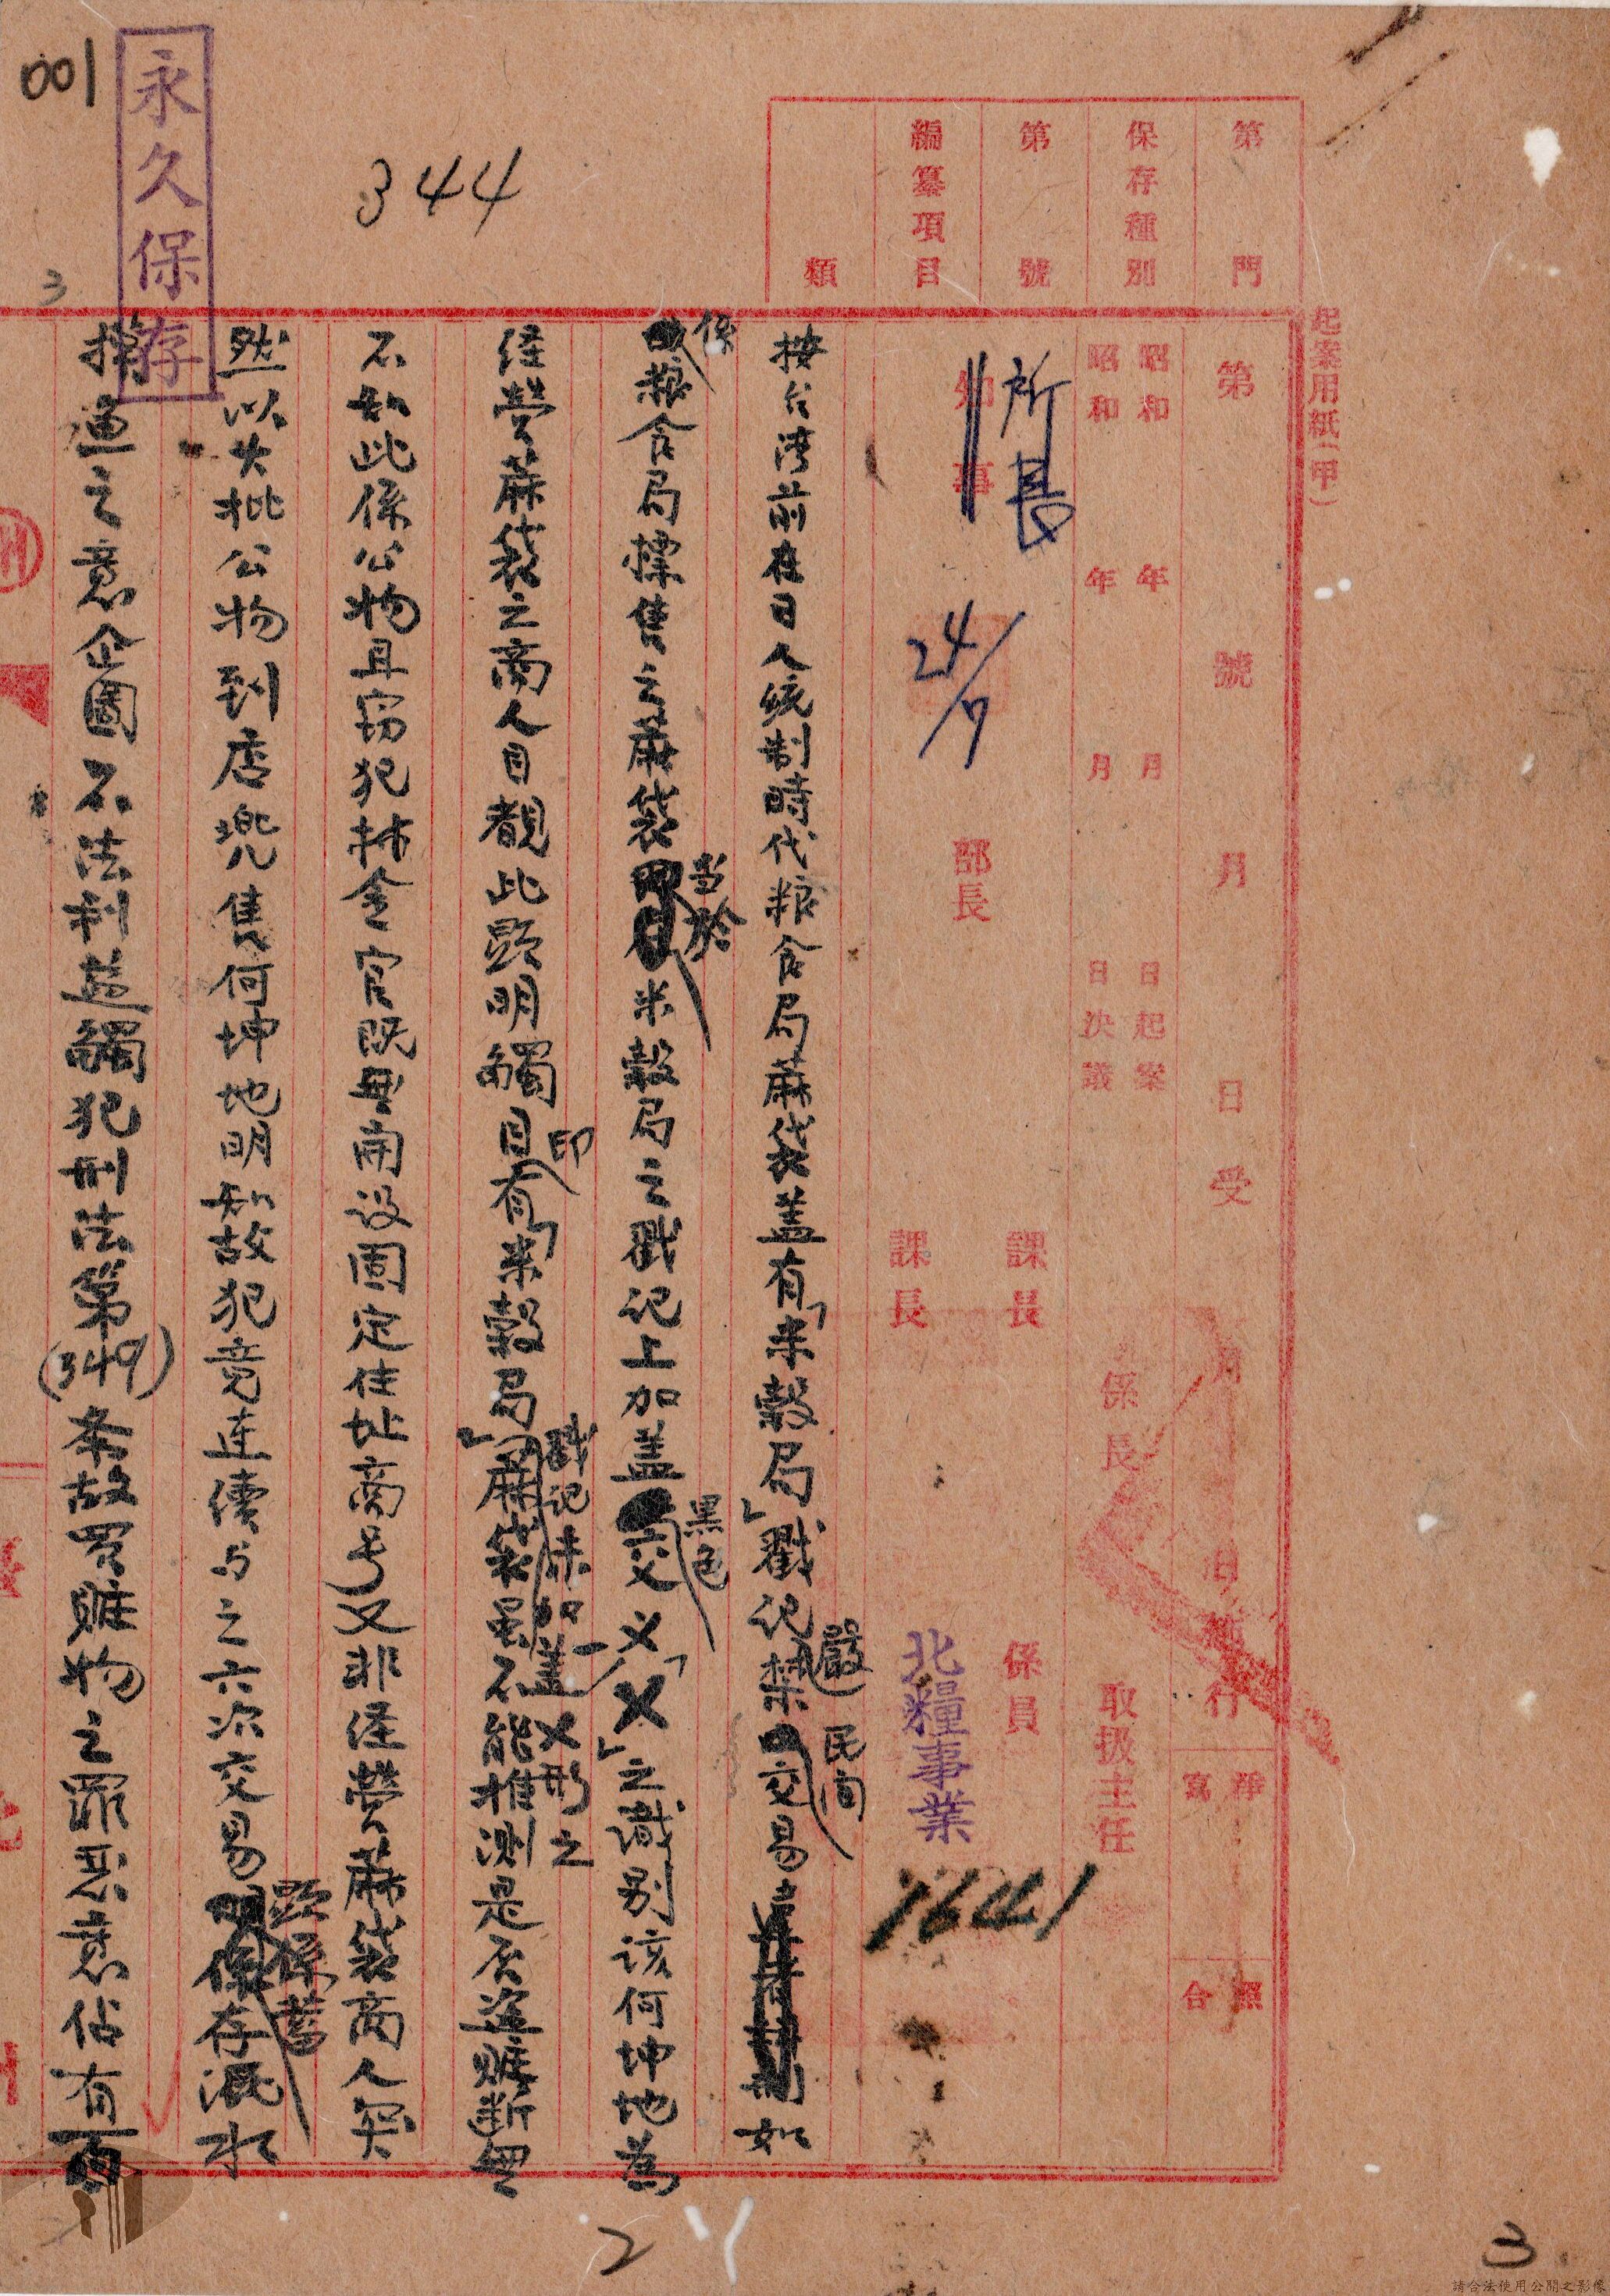 001
永久保存
344
3
第 門
保存種別
第 號
編纂項目
類
起案用紙(甲)
第 號 月 日受 月 日施行
淨寫
照合
昭和 年 月 日起案
昭和 年 月 日決議
係長
取扱主任
所長
知事
24/7
部長
課長
課長
係員
北糧事業
1641
按台湾前在日人統制時代粮食局蔴袋蓋有「米穀局」戳记嚴禁民间交易如
係粮食局標售之蔴袋当於米穀局之戳记上加蓋黑色交义「X」之識别该何坤地為
经營蔴袋之商人目覩此顕明觸目印有「米穀局」戳记未加蓋X形之蔴袋虽不能推測是否盗赃断無
不知此係公物且窃犯林金官既無開设固定住址商号又非经營蔴袋商人突
然以大批公物到店兜售何坤地明知故犯竟连續与之六次交易顕係蓄存溷水
摸渔之意企圖不法利益觸犯刑法第(349)条故買赃物之罪恶意佔有
2
3
請合法使用公開之影像